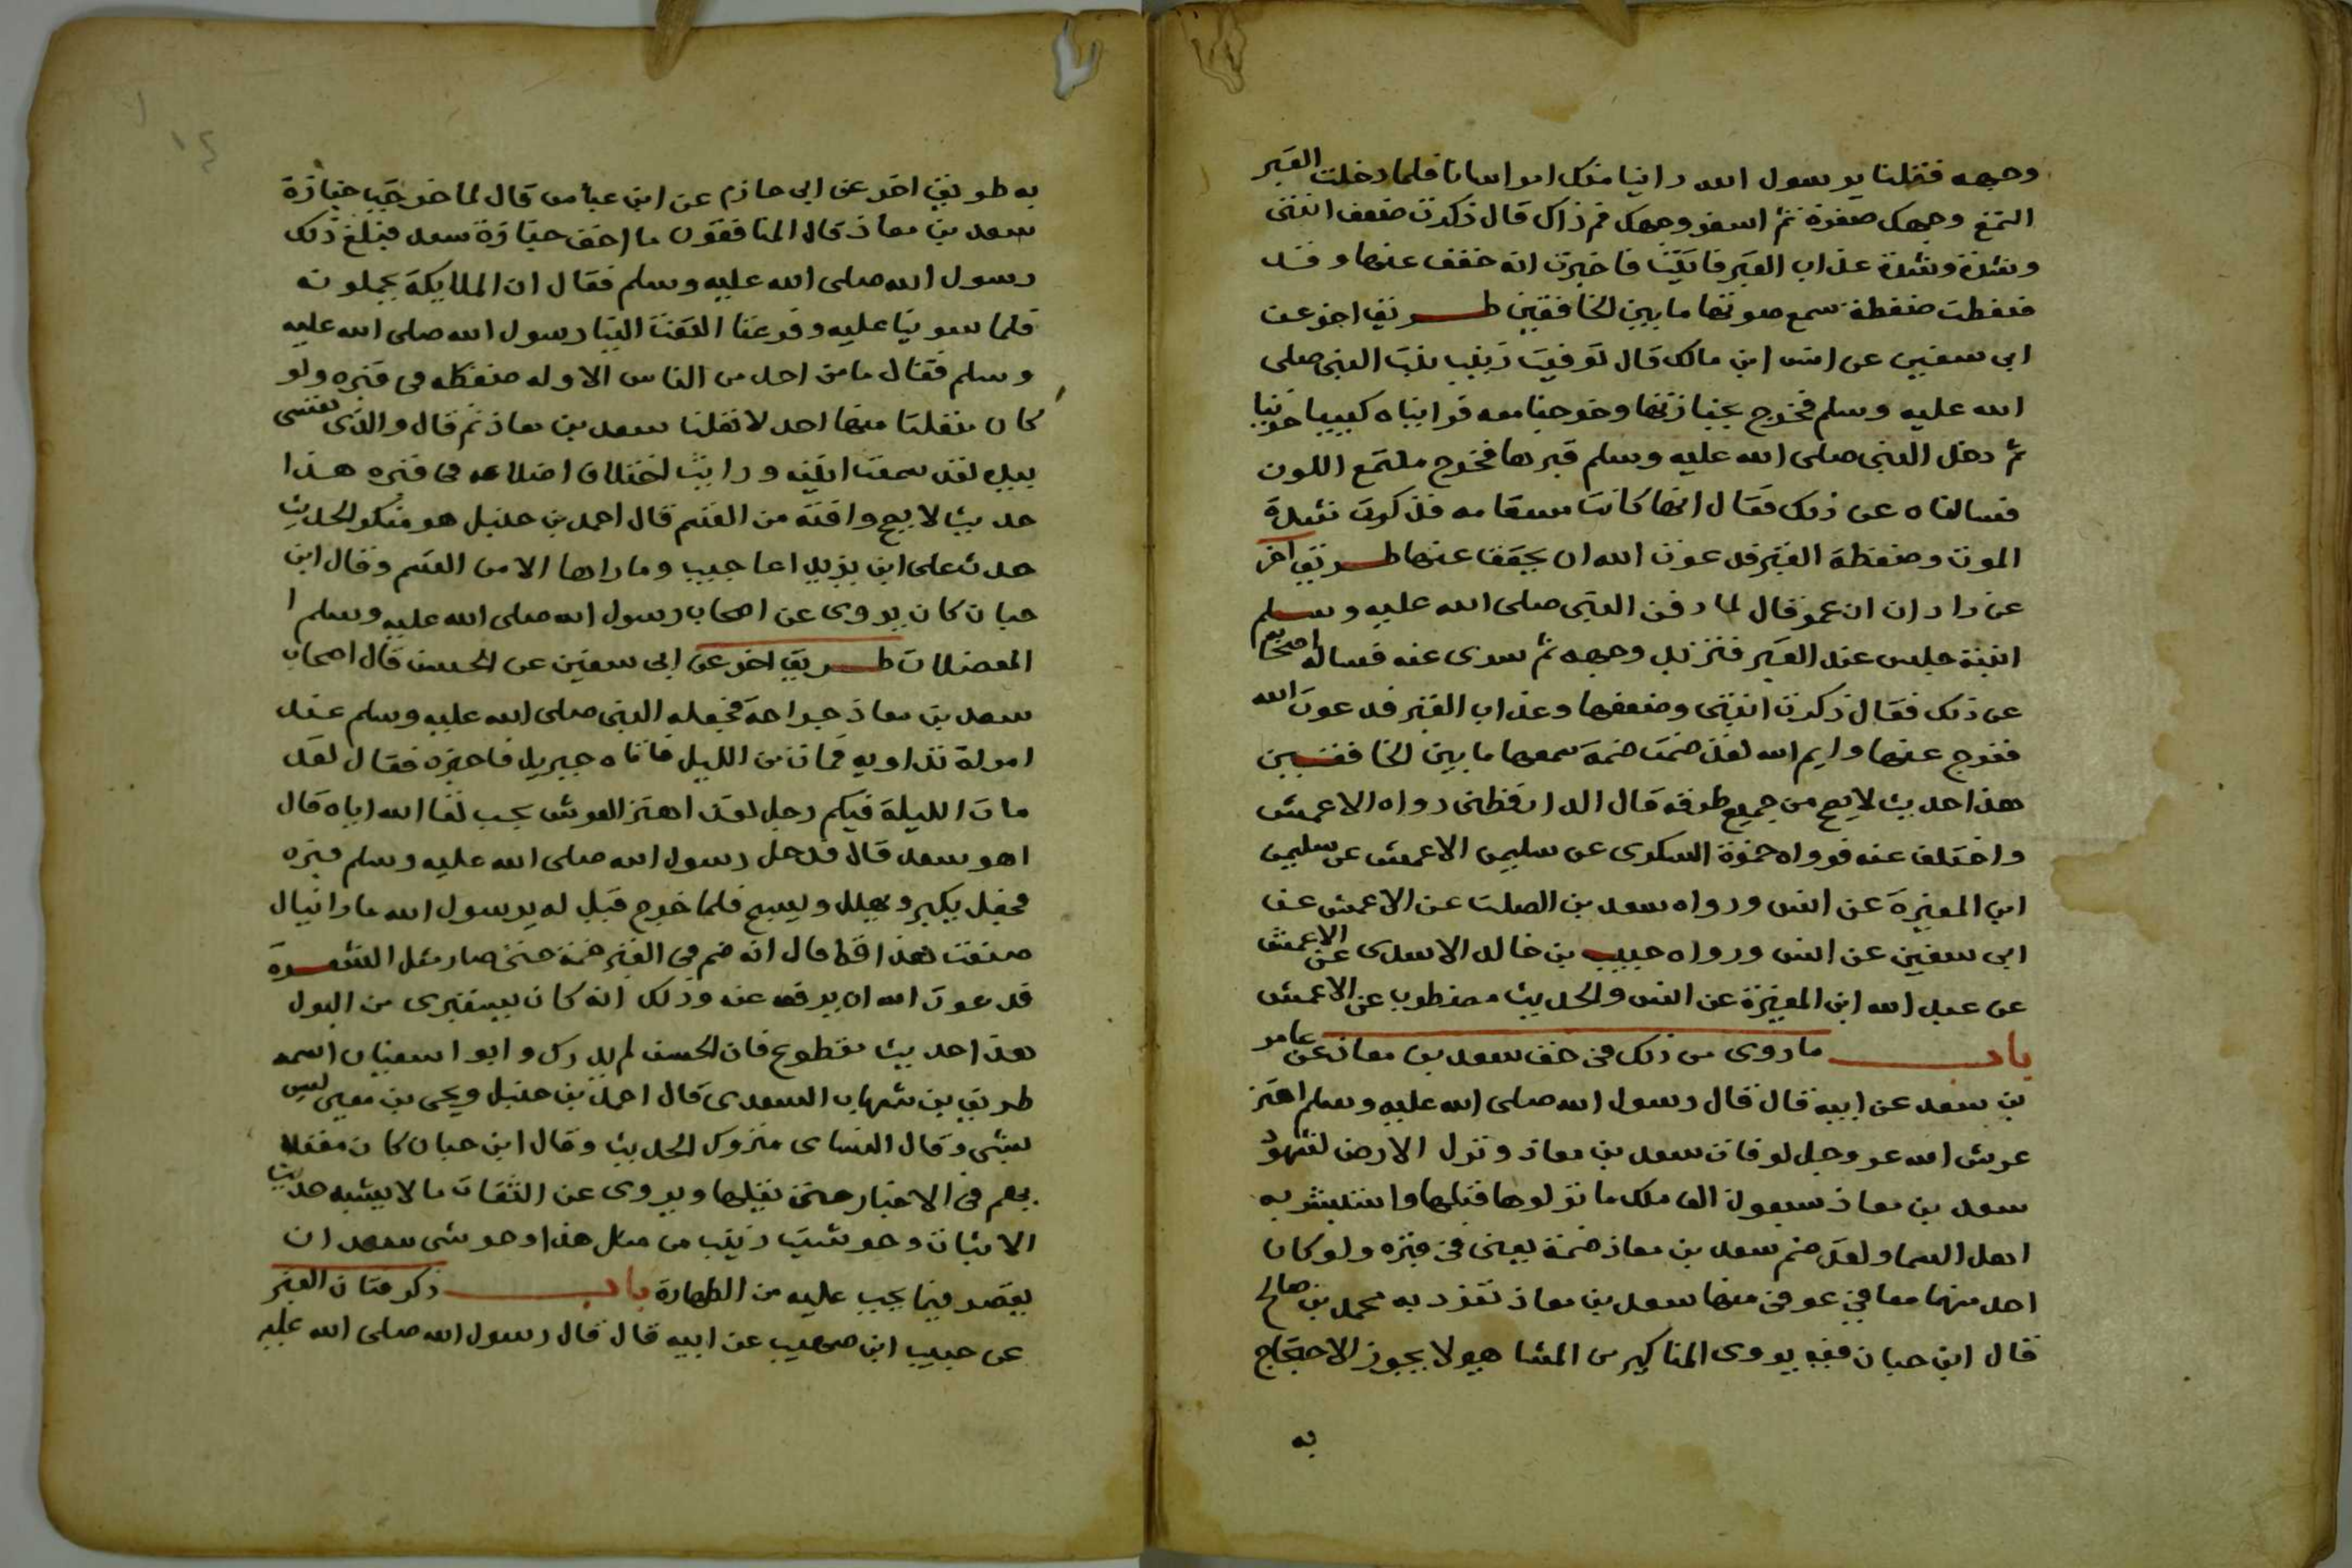 وجهه فقلنا يرسول الله راينا منك امرا سانا فلما دخلت القبر
التمع وجهك صفرة ثم اسفر وجهك فم ذاك قال ذكرت ضعف ابنتى
وشدة وشدة عذاب القبر فاتيت فاخبرت انه خفف عنها وقد
ضغطت ضغطة سمع صوتها ما بين الخافقين طريق اخر عن
ابى سفين عن انس ابن مالك قال توفيت زينب بنت النبى صلى
الله عليه وسلم فخرج بجنازتها وخرجنا معه فرايناه كييبا حزينا
ثم دخل النبى صلى الله عليه وسلم قبرها فخرج ملتمع اللون
فسالناه عن ذلك فقال انها كانت مسقامه فذكرت شدة
الموت وضغطة القبر فدعوت الله ان يخفف عنها طريق اخر
عن زادان ان عمر قال لما دفن النبى صلى الله عليه وسلم
ابنته جلس عند القبر فتربد وجهه ثم سرى عنه فساله اصحابه
عن ذلك فقال ذكرت ابنتى وضعفها وعذاب القبر فدعوت الله
ففرج عنها وايم الله لقد ضمت ضمة سمعها ما بين الخافقيين
هذا حديث لا يصح من جميع طرقه قال الدارقطنى رواه الاعمش
واختلف عنه فرواه حمزة السكرى عن سليمن الاعمش عن سليمن
ابن المغيرة عن انس ورواه سعد بن الصلت عن الاعمش عن
ابى سفين عن انس ورواه حبيب بن خالد الاسدى عن الاعمش
عن عبد الله ابن المغيرة عن انس والحديث مضطرب عن الاعمش
باب ما روى من ذلك فى حق سعد بن معاذ عن عامر
بن سعد عن ابيه قال قال رسول الله صلى الله عليه وسلم اهتز
عرش الله عز وجل لوفات سعد بن معاذ ونزل الارض لشهود
سعد بن معاذ سبعون الف ملك ما نزلوها قبلها واستبشر به
اهل السما ولقد ضم سعد بن معاذ ضمة يعنى فى قبره ولو كان
احد منهما معافى عوفى منها سعد بن معاذ تفرد به محمد بن صالح
قال ابن حبان فقيه يروى المناكير من المشاهير لا يجوز الاحتجاج
به
به طريق اخر عن ابى حازم عن ابن عباس قال لما خرجت جنازة
سعد بن معاذ قال المنافقون ما اخف جنازة سعد فبلغ ذلك
رسول الله صلى الله عليه وسلم فقال ان الملايكة يحملونه
فلما سوينا عليه وفرغنا التفت الينا رسول الله صلى الله عليه
وسلم فقال ما من احد من الناس الا وله ضغطه فى قبره ولو
كان منفلتا منها احد لانفلت سعد بن معاذ ثم قال والذى نفسى
بيده لقد سمعت انينه ورايت اختلاف اضلاعه فى قبره هذا
حديث لا يصح وافته من القسم قال احمد بن حنبل هو منكر الحديث
حدث على ابن يزيد اعاجيب وما اراها الا من القسم وقال ابن
حبان كان يروى عن اصحاب رسول الله صلى الله عليه وسلم ا
المعضلات طريق اخر عن ابى سفين عن الحسن قال اصحاب
سعد بن معاذ جراحة فجعله النبى صلى الله عليه وسلم عند
امراة تداويه فمات من الليل فاتاه جبريل فاخبره فقال لقد
مات الليلة فيكم رجل لقد اهتز العرش بحب لقا الله اياه قال
اهو سعد قال فدخل رسول الله صلى الله عليه وسلم قبره
فجعل يكبر ويهلل ويسبح فلما خرج قيل له يرسول الله ما رايناك
صنعت هذا قط قال انه ضم فى القبر ضمة حتى صار مثل الشعرة
فدعوت الله ان يرفه عنه وذلك انه كان ليستبرى من البول
هذا حديث مقطوع فان الحسن لم يدرك وابو اسفيان اسمه
طريف بن شهاب السعدى قال احمد بن حنبل ويحيى بن معين ليس
بشى وقال النساى متروك الحديث وقال ابن حبان كان مغفلا
يهم فى الاخبار حتى يقلبها ويروى عن الثقات ما لا يشبه حديث
الاثبات وحوشيت زينب من مثل هذا وحوشى سعد ان
يقصر فيما يجب عليه من الطهارة باب ذكر فتان القبر
عن حبيب ابن صهيب عن ابيه قال قال رسول الله صلى الله عليه